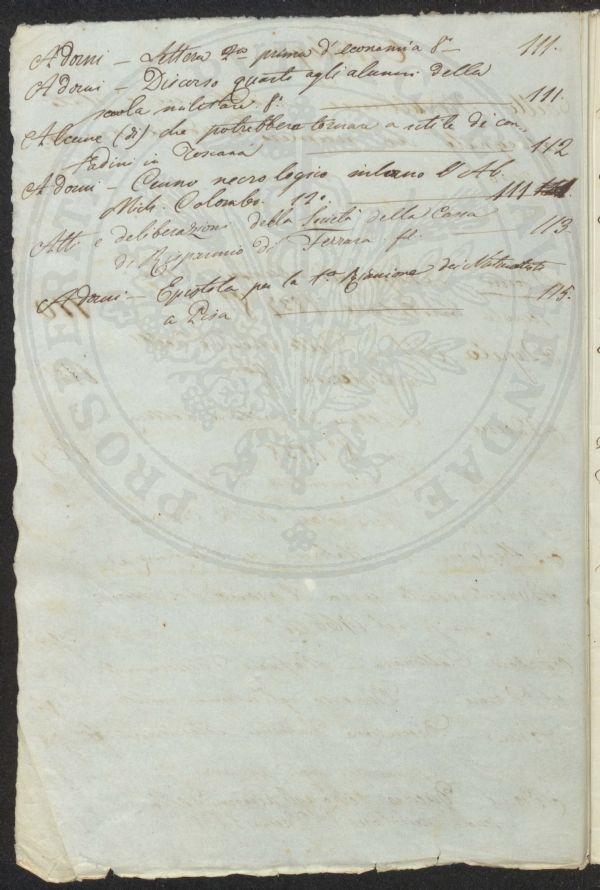 Adorni – Lettera prima d'economia 8° 111.
Adorni – Discorso quarto agli alunni della
scuola militare 8° 111.
Alcune (di) che potrebbero tornare a utile di con-
tadini in Toscana 112
Adorni – Cenno necrologico intorno l'Ab.
Mich. Colombo 12°. 111
Atti e deliberazioni della Società della Cassa
di Risparmio di Ferrara fl. 113
Adorni – Epistola per la 1ma Riunione dei Naturalisti
a Pisa 115.
PROSPERITATI AVENDAE